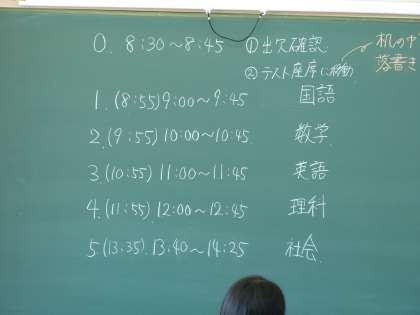 0. 8:30〜8:45 ①出欠確認
②テスト座席に移動
机の中
落書き
1. (8:55) 9:00〜9:45 国語
2. (9:55) 10:00〜10:45. 数学
3. (10:55) 11:00〜11:45 英語
4. (11:55). 12:00〜12:45 理科
5 (13:35). 13:40〜14:25 社会